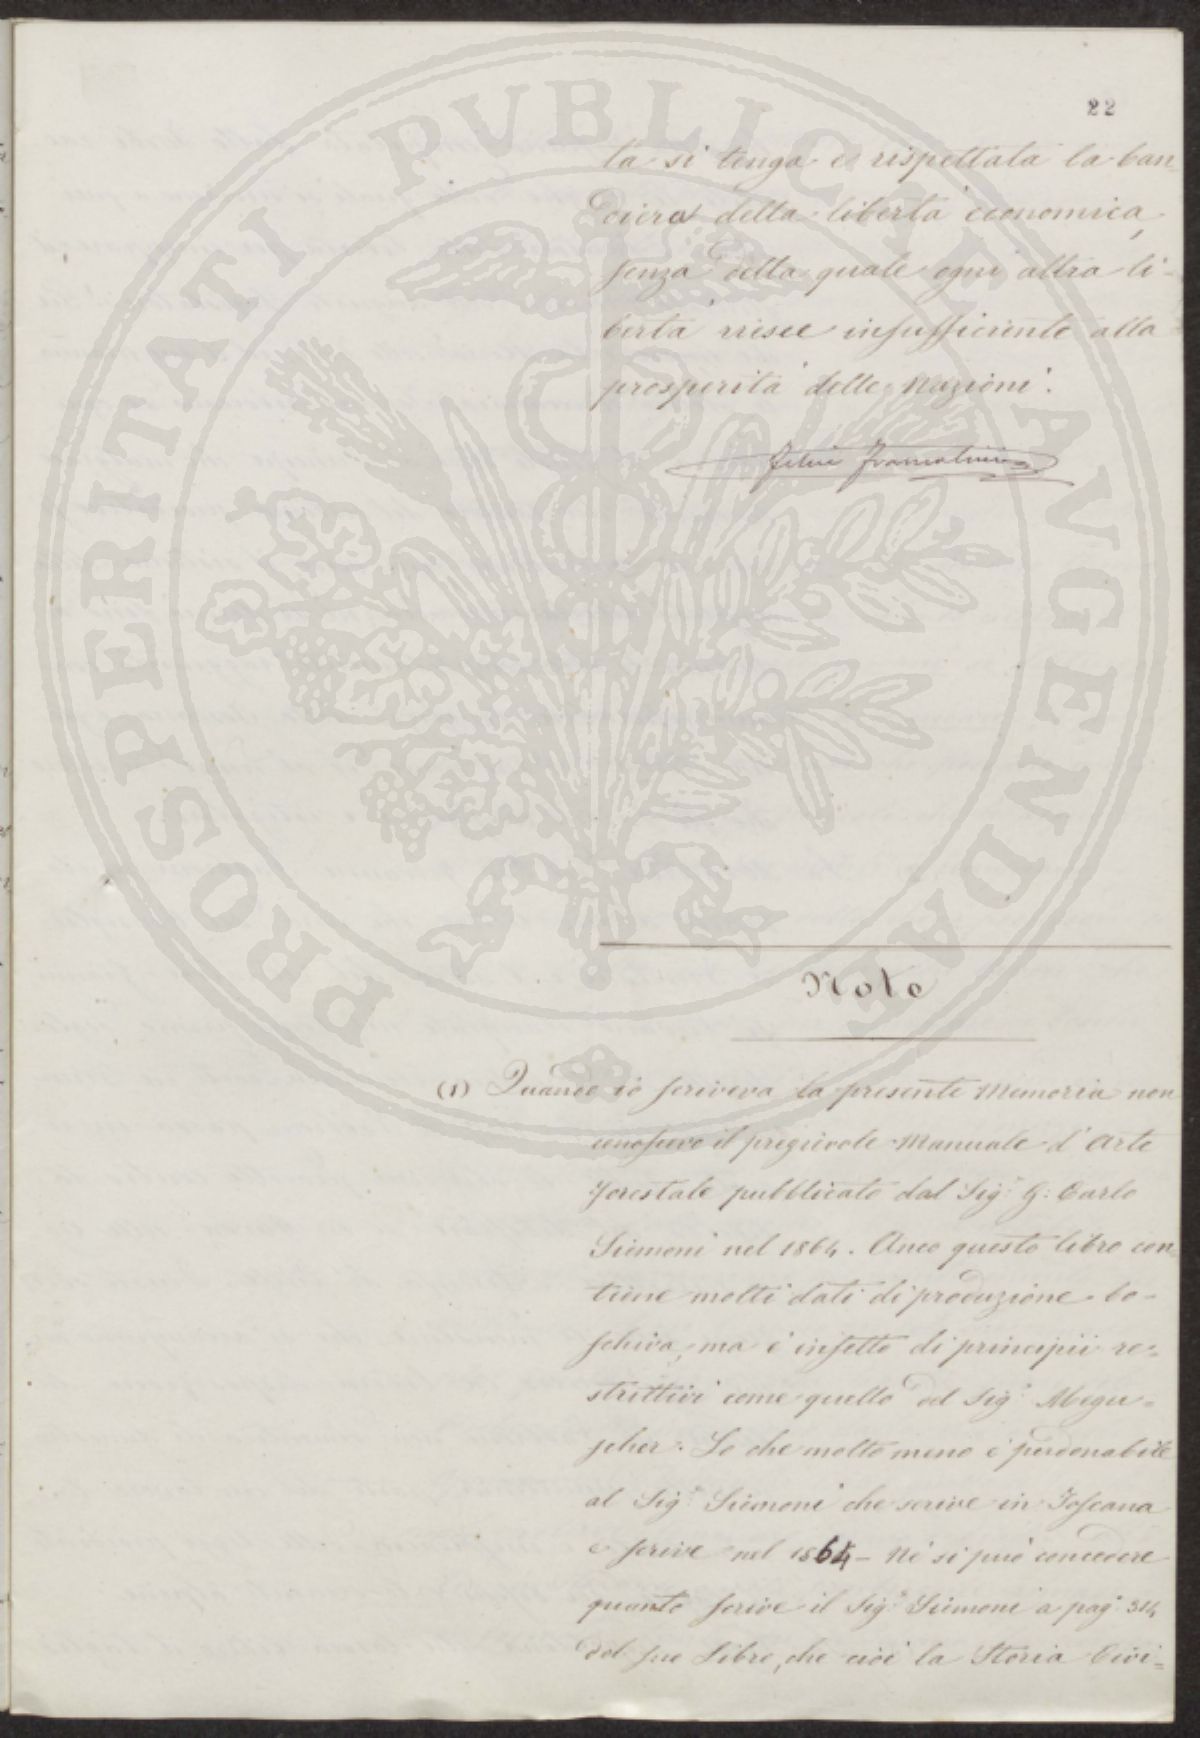 22
ta si tenga e rispettata la ban-
diera della libertà economica,
senza della quale ogni altra li-
bertà riesce insufficiente alla
prosperità delle Nazioni.
Felice Francolini
Note
(1) Quando io scriveva la presente Memoria non
conoscevo il pregievole Manuale d'Arte
Forestale pubblicato dal Sig.r G. Carlo
Siemoni nel 1864. Anco questo libro con-
tiene molti dati di produzione bo-
schiva, ma è infetto di principii re-
strittivi come quello del Sig.r Megu-
scher. Lo che molto meno è perdonabile
al Sig.r Siemoni che scrive in Toscana
e scrive nel 1864 - Nè si può concedere
quanto scrive il Sig.r Siemoni a pag. 314
del suo Libro, che cioè la Storia Civi-
PROSPERITATI PVBLICAE AVGENDAE